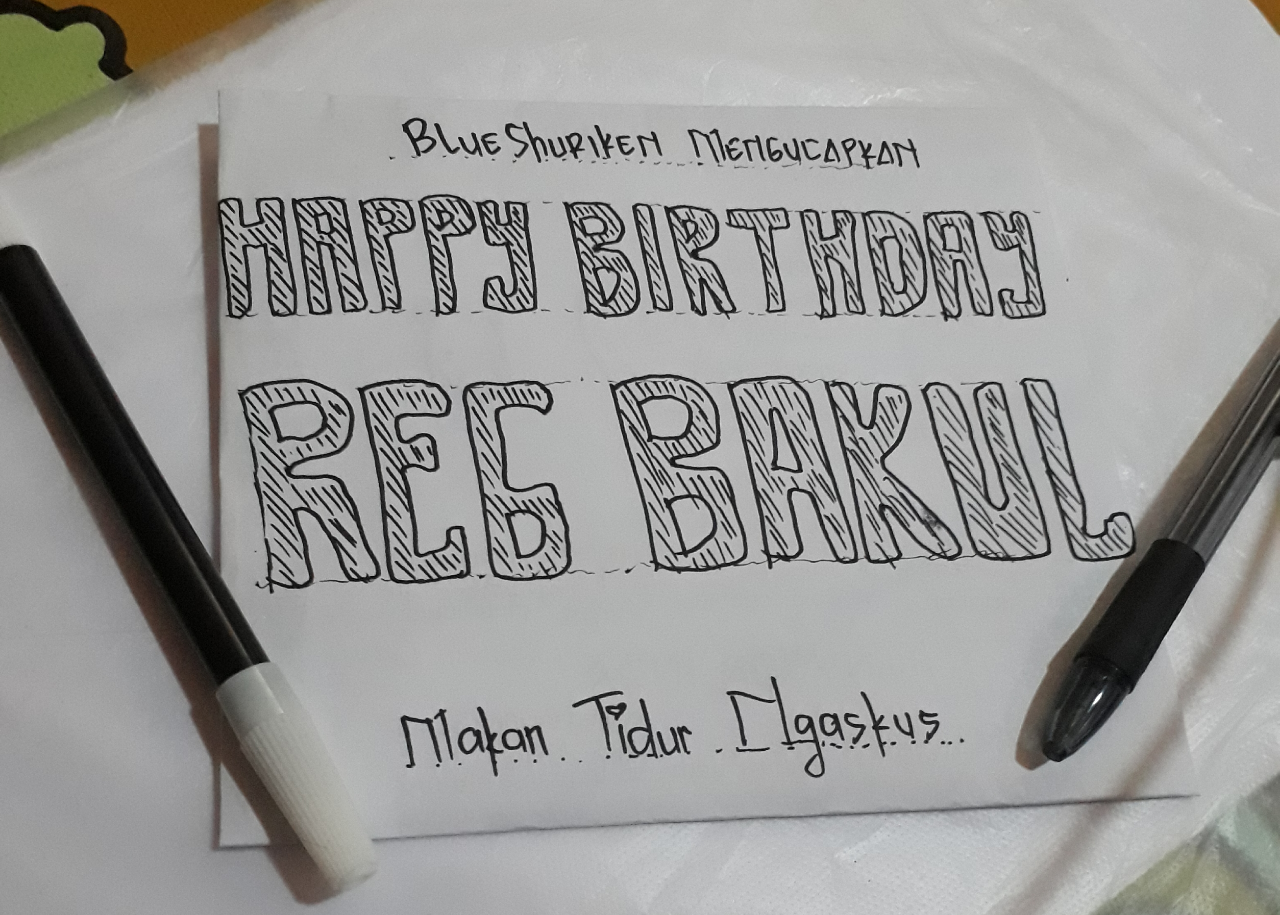 BLUESHURIKEN MENGUCAPKAN
HAPPY BIRTHDAY
REG BAKUL
Makan Tidur Ngaskus